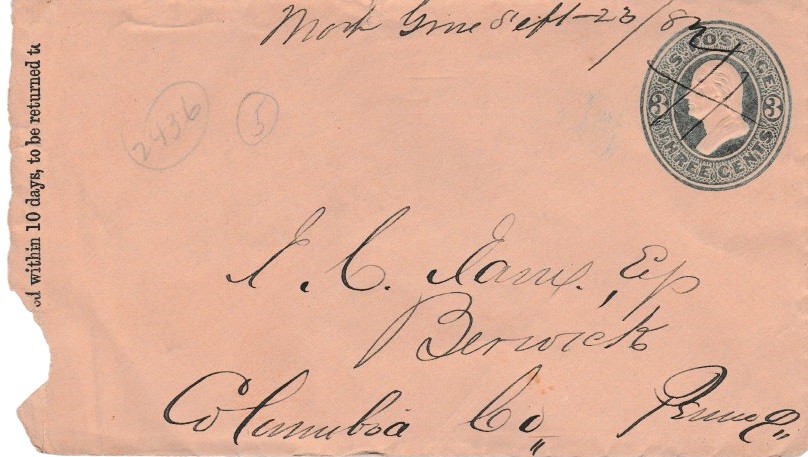 Sept-23/82
U.S. POSTAGE
3 3
THREE CENTS
2436
5
ed within 10 days, to be returned to
Berwick
Columbia Co,, Penna,,